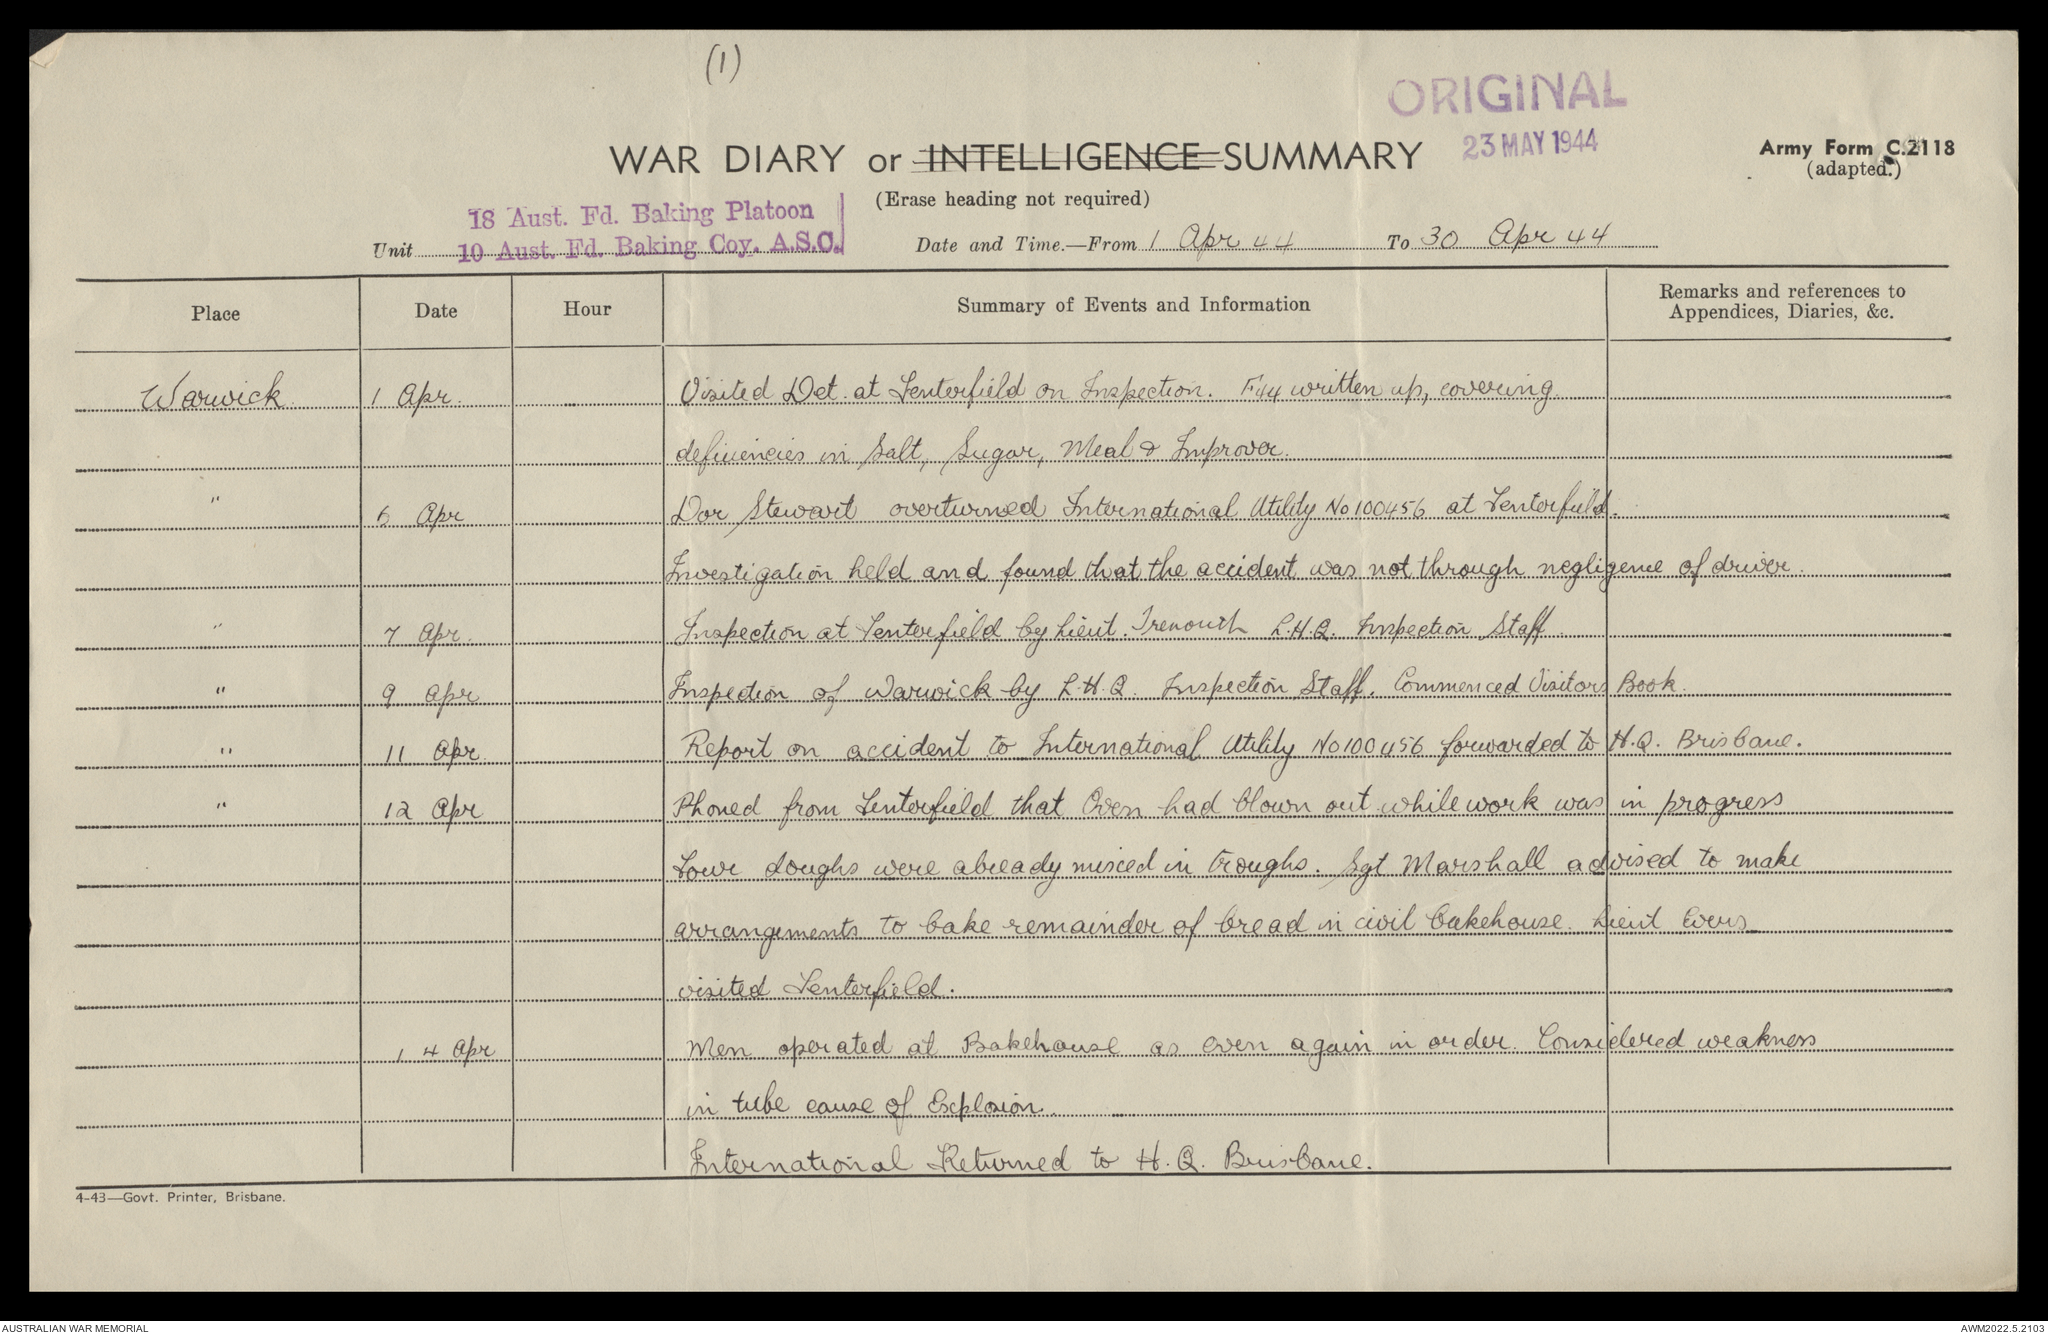 (1)
ORIGINAL
23 MAY 1944
WAR DIARY or INTELLIGENCE SUMMARY
Army Form C.2118
(adapted.)
(Erase heading not required)
18 Aust. Fd. Baking Platoon
Unit 10 Aust. Fd. Baking Coy. A.S.C. Date and Time.—From 1 Apr 44 To 30 Apr 44
Place Date Hour Summary of Events and Information Remarks and references to
Appendices, Diaries, &c.
Warwick 1 Apr. Visited Det. at Tenterfield on Inspection. F44 written up, covering
deficiencies in Salt, Sugar, Meal & Improver.
" 6 Apr Dvr Stewart overturned International Utility No 100456 at Tenterfield.
Investigation held and found that the accident was not through negligence of driver.
" 7 Apr. Inspection at Tenterfield by Lieut. Trenouth L.H.Q. Inspection Staff.
" 9 Apr Inspection of Warwick by L.H.Q. Inspection Staff. Commenced Visitors Book.
" 11 Apr. Report on accident to International Utility No 100456 forwarded to H.Q. Brisbane.
" 12 Apr Phoned from Tenterfield that Oven had blown out while work was in progress
Four doughs were already mixed in troughs. Sgt Marshall advised to make
arrangements to bake remainder of bread in civil bakehouse. Lieut Evers
visited Tenterfield.
14 Apr Men operated at Bakehouse as oven again in order. Considered weakness
in tube cause of Explosion.
International Returned to H.Q. Brisbane.
4-43—Govt. Printer, Brisbane.
AUSTRALIAN WAR MEMORIAL AWM2022.5.2103